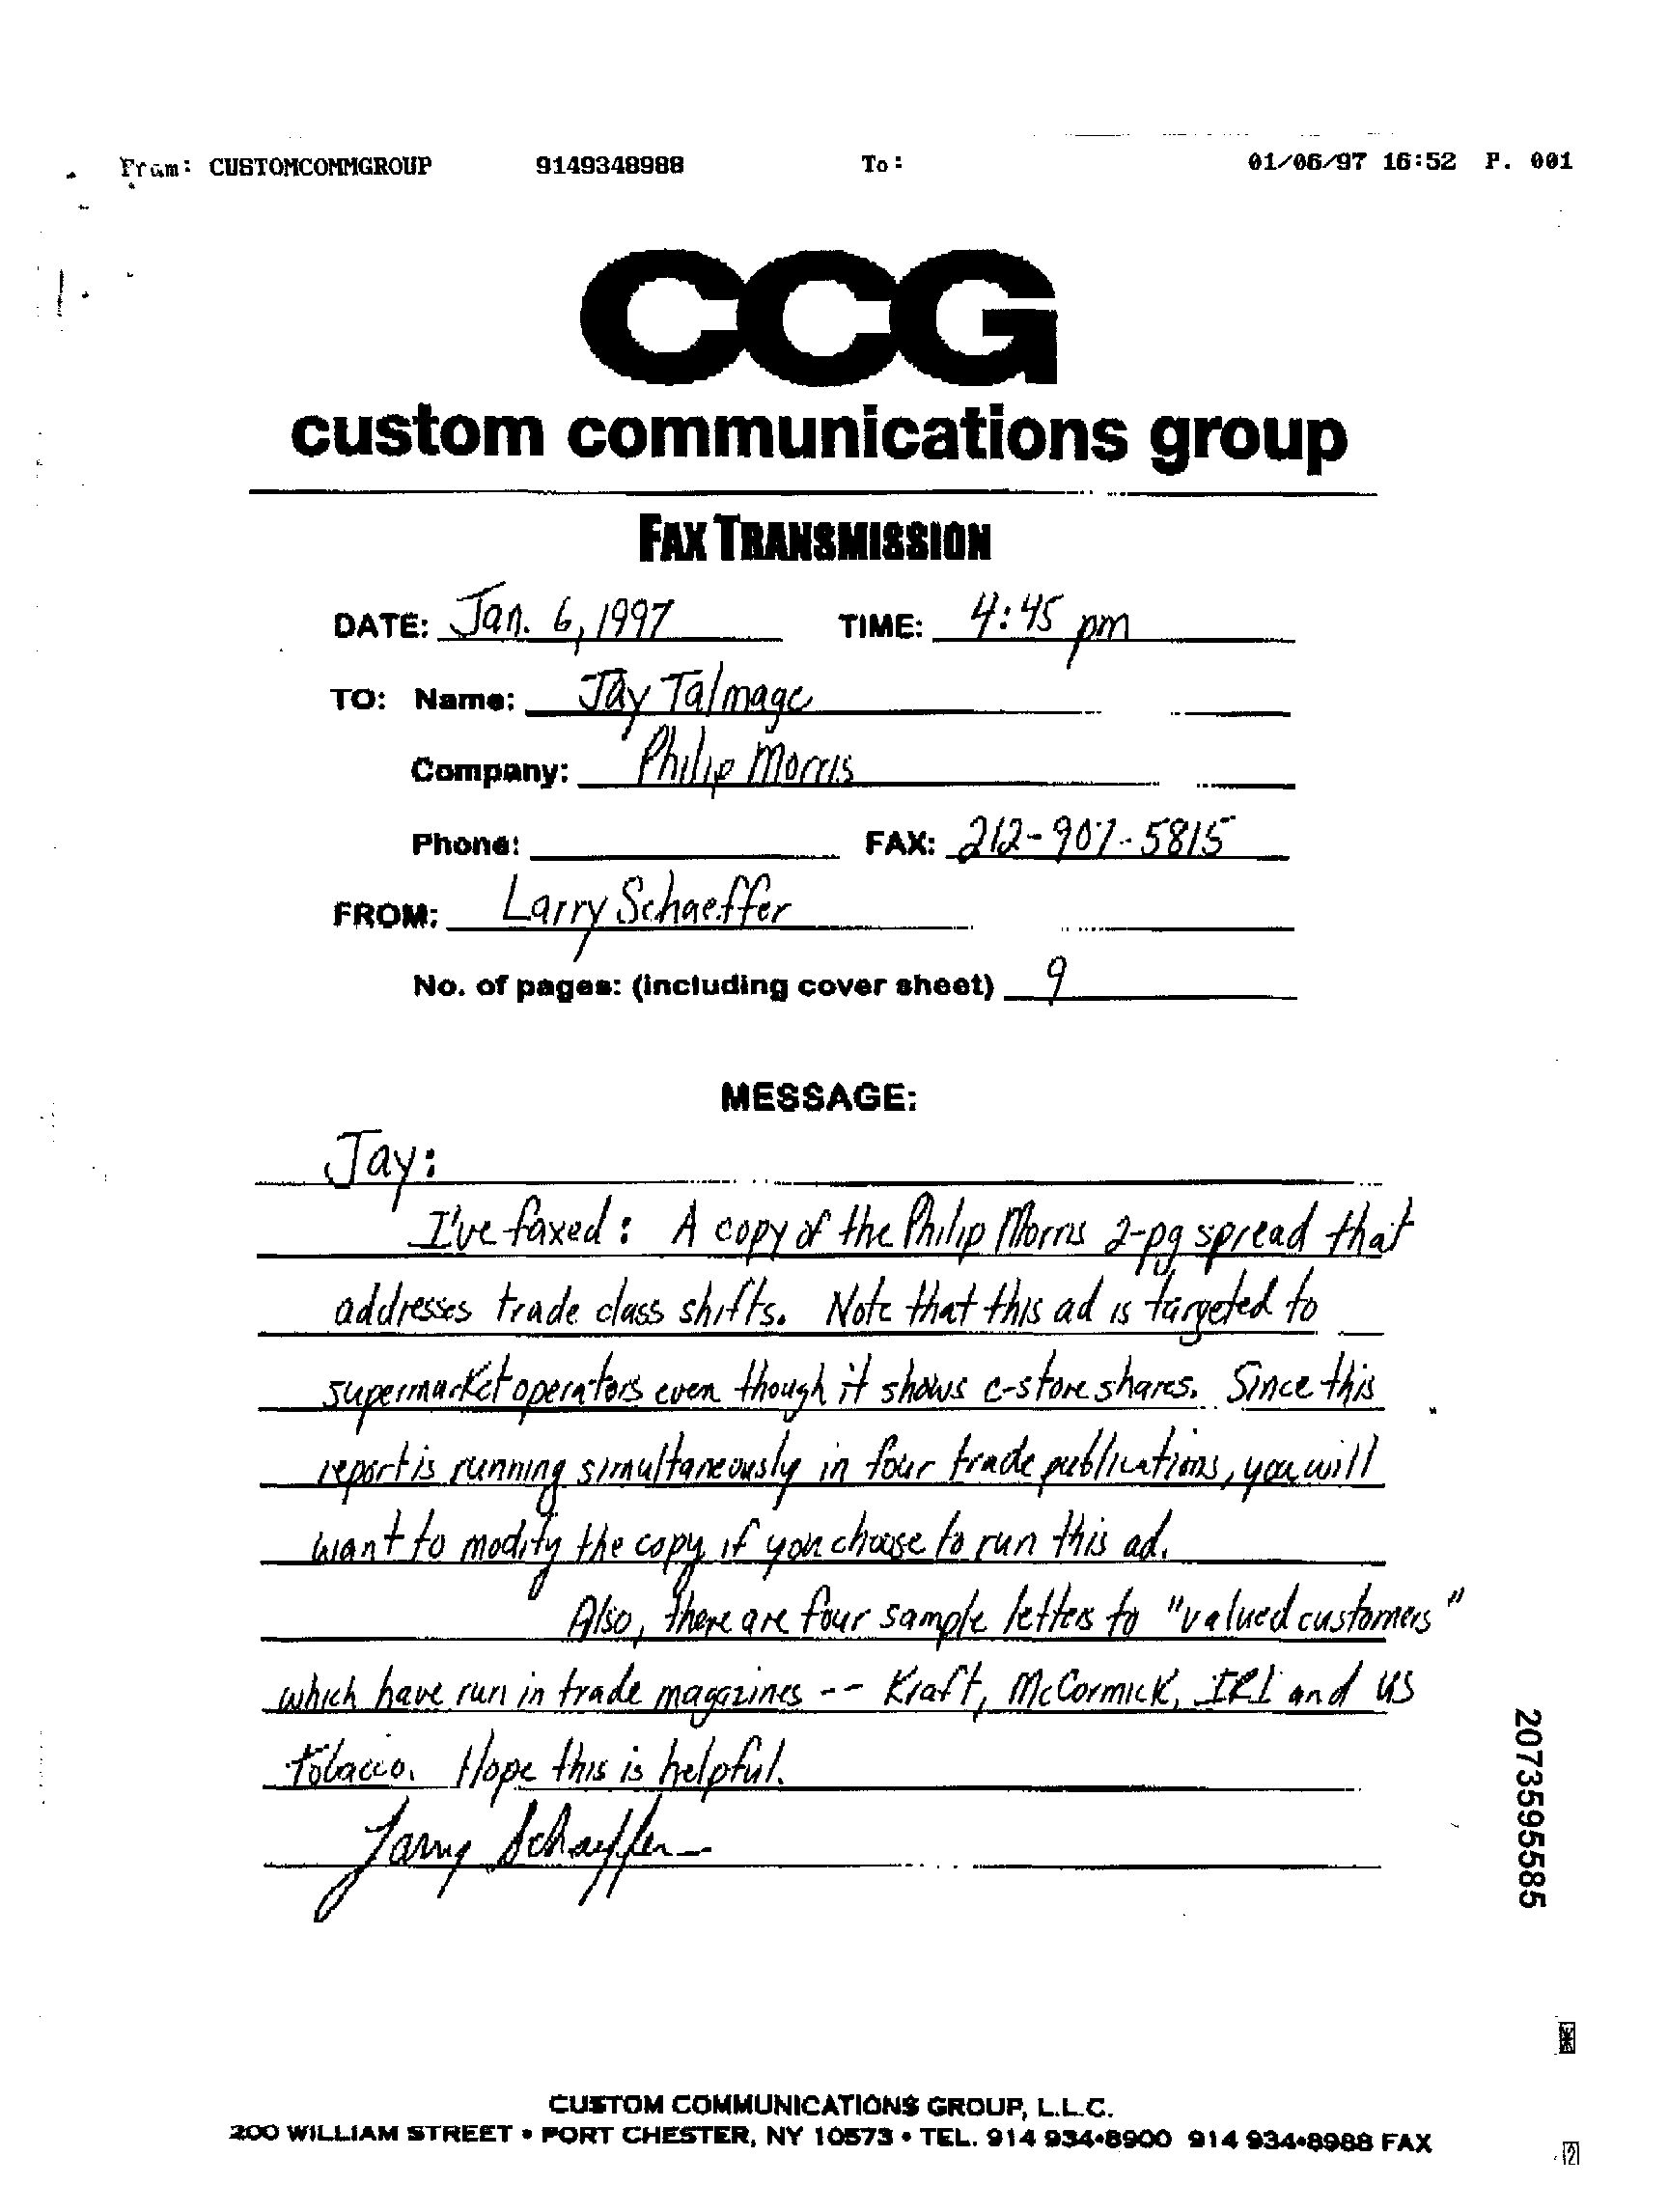 From: CUSTOMCOMMGROUP 9149348988 To: 01/06/97 16:52 P. 001
CCG
custom communications group
FAX TRANSMISSION
DATE: Jan. 6, 1997 TIME: 4:45 pm
TO: Name: Jay Talmage
Company: Philip Morris
Phone: FAX: 212-907-5815
FROM: Larry Schaeffer
No. of pages: (including cover sheet) 9
MESSAGE:
Jay:
I've faxed: A copy of the Philip Morris 2-pg spread that
addresses trade class shifts. Note that this ad is targeted to
supermarket operators even though it shows c-store shares. Since this
report is running simultaneously in four trade publications, you will
want to modify the copy if you choose to run this ad.
Also, there are four sample letters to "valued customers"
which have run in trade magazines -- Kraft, McCormick, IRI and US
Tobacco. Hope this is helpful.
Larry Schaeffer
2073595585
CUSTOM COMMUNICATIONS GROUP, L.L.C.
200 WILLIAM STREET • PORT CHESTER, NY 10573 • TEL. 914 934•8900 914 934•8988 FAX
2